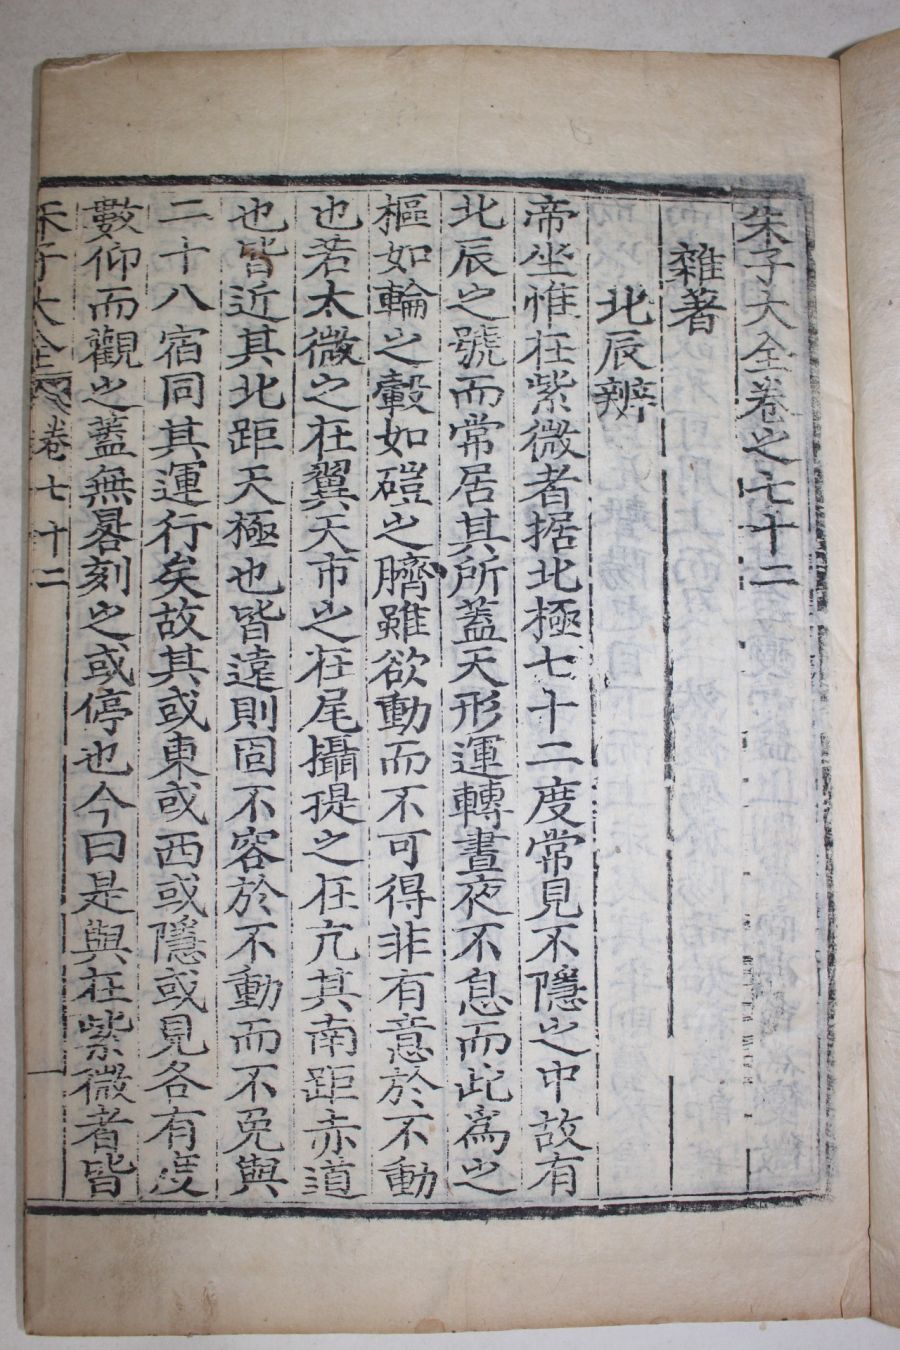 朱子大全卷之七十二
雜著
北辰辨
帝坐惟在紫微者据北極七十二度常見不隱之中故有
北辰之號而常居其所蓋天形運轉晝夜不息而此爲之
樞如輪之轂如磑之臍雖欲動而不可得非有意於不動
也若太微之在翼天市之在尾攝提之在亢其南距赤道
也皆近其北距天極也皆遠則固不容於不動而不免與
二十八宿同其運行矣故其或東或西或隱或見各有度
數仰而觀之蓋無晷刻之或停也今曰是與在紫微者皆
朱子大全 卷七十二 一